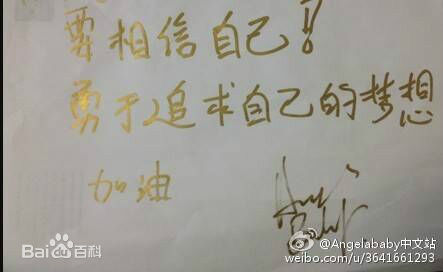 要相信自己!
勇于追求自己的梦想
加油
Bai百科
@Angelababy中文站
weibo.com/u/3641661293